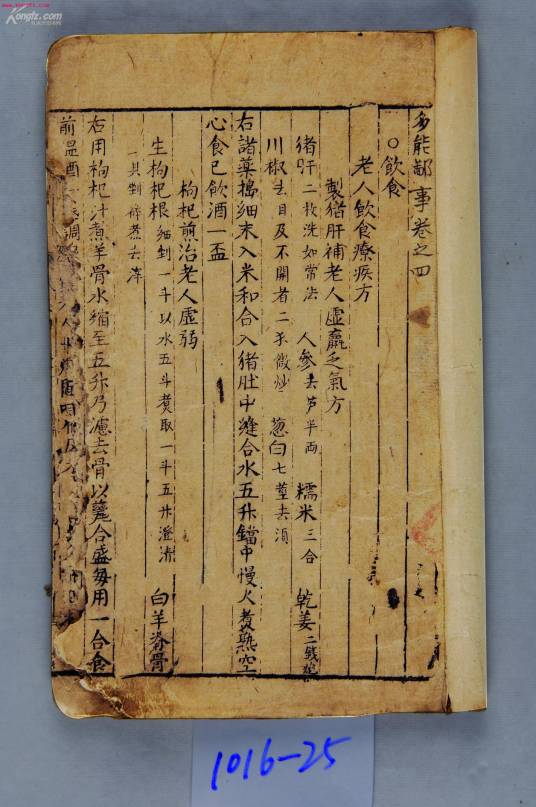 Kongfz.com
多能鄙事卷之四
○飲食
老人飲食療疾方
製猪肝補老人虛羸乏氣方
猪肝二枚洗如常法 人參去芦半両 糯米三合 乾姜二錢
川椒去目及不開者二 微炒 葱白七莖去鬚
右諸藥搗細末入米和合入猪肚中縫合水五升鐺中慢火煑熟空
心食已飲酒一盃
枸杞煎治老人虛弱
生枸杞根細剉一斗以水五斗煑取一斗五升澄清 白羊脊骨
一具剉碎煮去滓
右用枸杞汁煮羊骨水縮至五升乃濾去骨以甆合盛每用一合食
前温酒一
1016-25